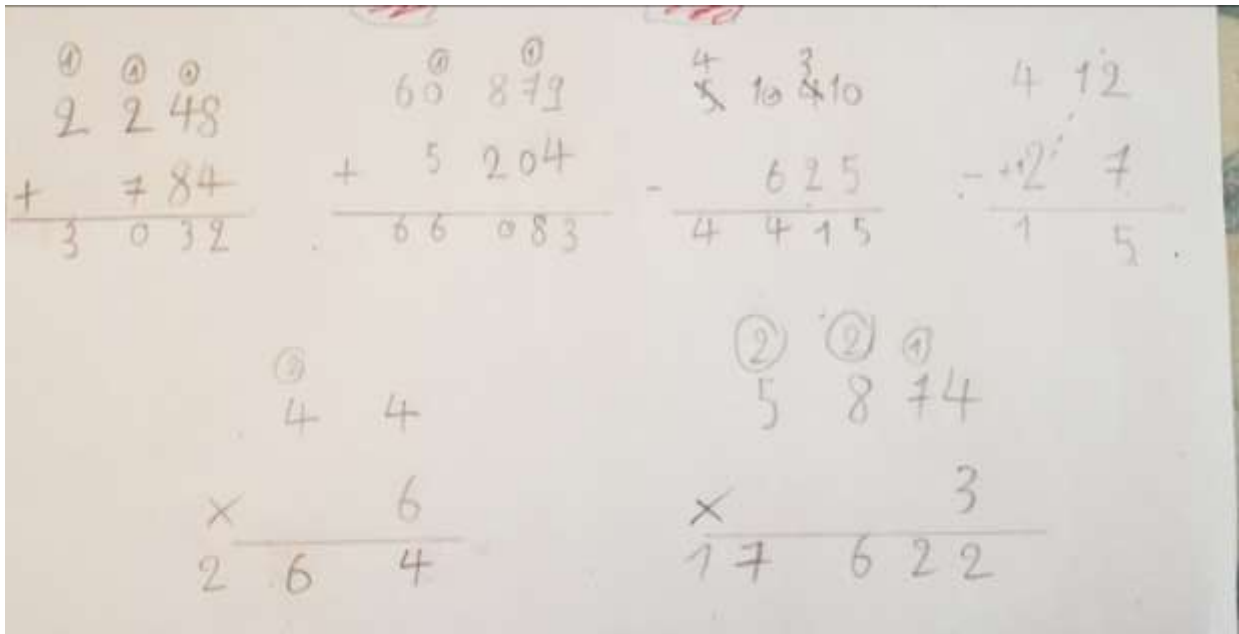 ① ① ①
2 2 48
+ 7 84
3 0 3 2
① ①
60 879
+ 5 204
66 083
4 3
5 10 4 10
- 625
4 4 1 5
4 12
- +2 7
1 5
②
4 4
× 6
2 6 4
② ② ①
5 8 74
× 3
17 6 2 2